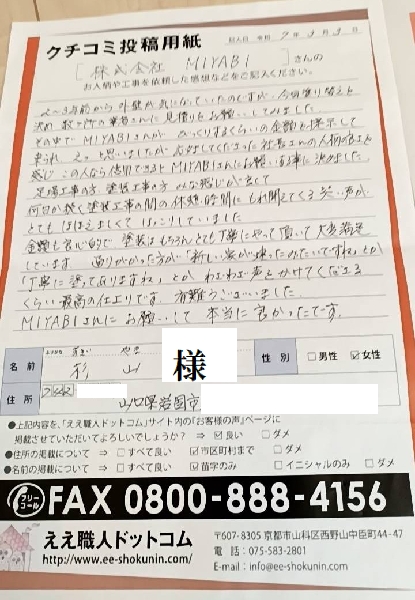 クチコミ投稿用紙
記入日 令和 7年3月3日
[ 株式会社 MIYABI ] さんの
お人柄や工事を依頼した感想などをご記入ください。
2〜3年前から外壁が気になっていたのですが、今回塗り替えを
決め 数ヶ所の業者さんに見積りをお願いしてみました
その中で MIYABIさんが びっくりするくらいの金額を提示して
来られ えっ と思いましたが 応対してくださった社長さんの人柄の良さを
感じ この人なら信用できると MIYABIさんにお願いする事に決めました。
足場工事の方、塗装工事の方 みな感じが良くて
何日か続く塗装工事の間の休憩時間にも聞えてくる笑い声が
とても ほほえましくて ほっこりしていました
金額も良心的で 塗装はもちろん とても丁寧にやって頂いて 大変満足
しています 通りがかった方が「新しい家が建ったみたいですね」とか
「丁寧に塗ってありますね」とか わざわざ声をかけてくださる
くらい最高の仕上りです。有難うございました
MIYABIさんにお願いして 本当に良かったです。
名前 杉山 様 性別 □男性 ☑女性
住所 山口県岩国市
●上記内容を、「ええ職人ドットコム」サイト内の「お客様の声」ページに
掲載させていただいてよろしいでしょうか? ⇒ ☑良い □ダメ
●住所の掲載について ⇒ □すべて良い ☑市区町村まで □ダメ
●名前の掲載について ⇒ □すべて良い ☑苗字のみ □イニシャルのみ □ダメ
フリーコール FAX 0800-888-4156
ええ職人ドットコム
http://www.ee-shokunin.com/
〒607-8305 京都市山科区西野山中臣町44-47
電話:075-583-2801
E-mail:info@ee-shokunin.com